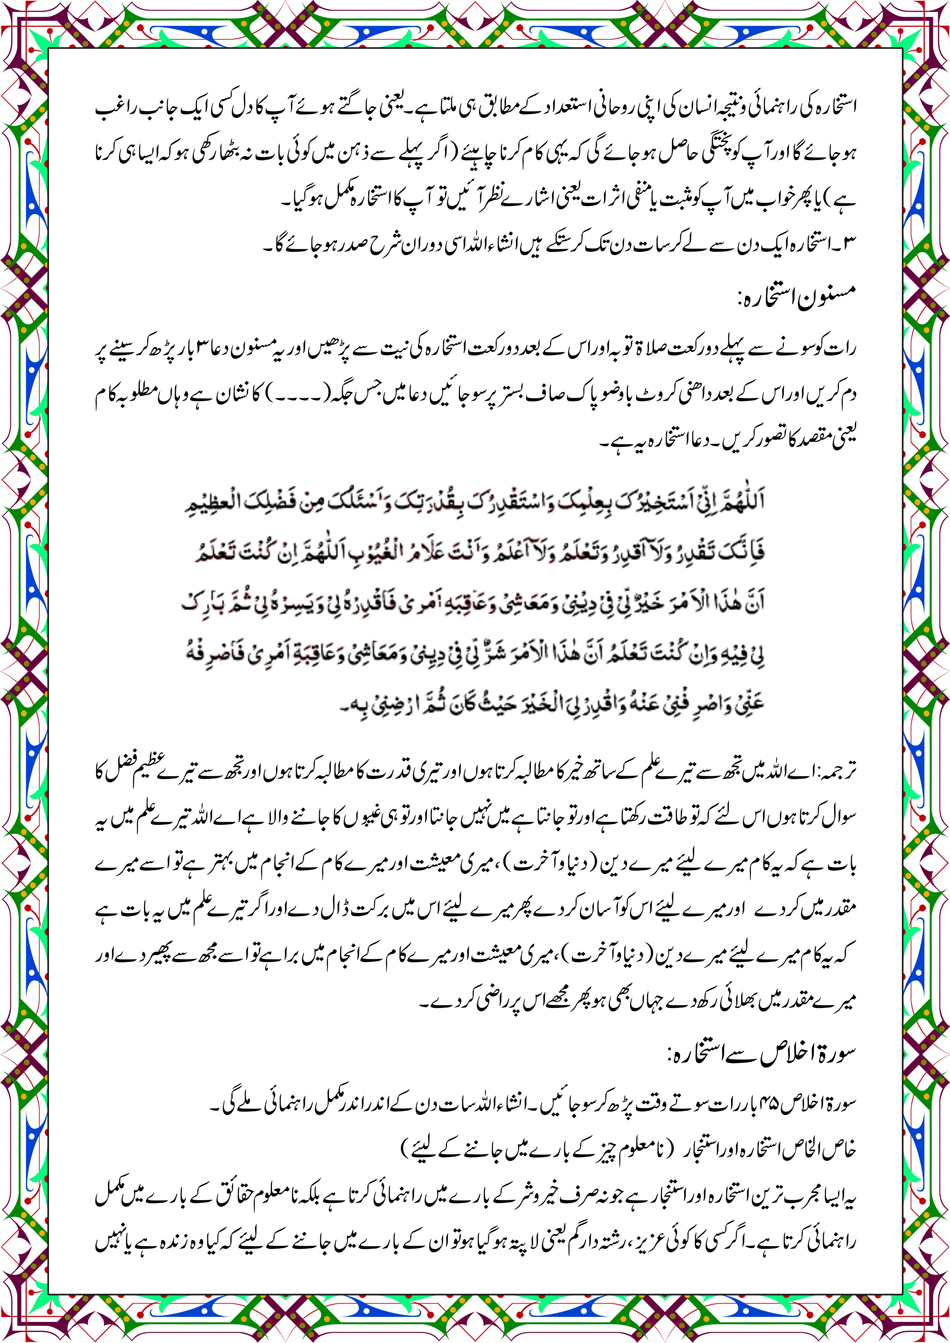 استخارہ کی راہنمائی و نتیجہ انسان کی اپنی روحانی استعداد کے مطابق ہی ملتا ہے۔ یعنی جاگتے ہوئے آپ کا دل کسی ایک جانب راغب
ہو جائے گا اور آپ کو پختگی حاصل ہو جائے گی کہ یہی کام کرنا چاہیئے (اگر پہلے سے ذہن میں کوئی بات نہ بٹھا رکھی ہو کہ ایسا ہی کرنا
ہے) یا پھر خواب میں آپ کو مثبت یا منفی اثرات یعنی اشارے نظر آئیں تو آپ کا استخارہ مکمل ہو گیا۔
۳۔ استخارہ ایک دن سے لے کر سات دن تک کر سکتے ہیں انشاء اللہ اسی دوران شرح صدر ہو جائے گا۔
مسنون استخارہ:
رات کو سونے سے پہلے دو رکعت صلاۃ توبہ اور اس کے بعد دو رکعت استخارہ کی نیت سے پڑھیں اور یہ مسنون دعا ۳ بار پڑھ کر سینے پر
دم کریں اور اس کے بعد داھنی کروٹ باوضو پاک صاف بستر پر سو جائیں دعا میں جس جگہ (۔۔۔۔) کا نشان ہے وہاں مطلوبہ کام
یعنی مقصد کا تصور کریں۔ دعا استخارہ یہ ہے۔
اَللّٰهُمَّ اِنِّیْۤ اَسْتَخِیْرُکَ بِعِلْمِکَ وَاسْتَقْدِرُکَ بِقُدْرَتِکَ وَاَسْئَلُکَ مِنْ فَضْلِکَ الْعَظِیْمِ
فَاِنَّکَ تَقْدِرُ وَلَاۤ اَقْدِرُ وَتَعْلَمُ وَلَاۤ اَعْلَمُ وَاَنْتَ عَلَّامُ الْغُیُوْبِ اَللّٰهُمَّ اِنْ کُنْتَ تَعْلَمُ
اَنَّ هٰذَا الْاَمْرَ خَیْرٌ لِّیْ فِیْ دِیْنِیْ وَمَعَاشِیْ وَعَاقِبَهِ اَمْرِیْ فَاقْدِرْهُ لِیْ وَیَسِّرْهُ لِیْ ثُمَّ بَارِکْ
لِیْ فِیْهِ وَاِنْ کُنْتَ تَعْلَمُ اَنَّ هٰذَا الْاَمْرَ شَرٌّ لِّیْ فِیْ دِیْنِیْ وَمَعَاشِیْ وَعَاقِبَةِ اَمْرِیْ فَاصْرِفْهُ
عَنِّیْ وَاصْرِفْنِیْ عَنْهُ وَاقْدِرْ لِیَ الْخَیْرَ حَیْثُ کَانَ ثُمَّ ارْضِنِیْ بِهٖ۔
ترجمہ: اے اللہ میں تجھ سے تیرے علم کے ساتھ خیر کا مطالبہ کرتا ہوں اور تیری قدرت کا مطالبہ کرتا ہوں اور تجھ سے تیرے عظیم فضل کا
سوال کرتا ہوں اس لئے کہ تو طاقت رکھتا ہے اور تو جانتا ہے میں نہیں جانتا اور تو ہی غیبوں کا جاننے والا ہے اے اللہ تیرے علم میں یہ
بات ہے کہ یہ کام میرے لیئے میرے دین (دنیا و آخرت)، میری معیشت اور میرے کام کے انجام میں بہتر ہے تو اسے میرے
مقدر میں کر دے اور میرے لیئے اس کو آسان کر دے پھر میرے لیئے اس میں برکت ڈال دے اور اگر تیرے علم میں یہ بات ہے
کہ یہ کام میرے لیئے میرے دین (دنیا و آخرت)، میری معیشت اور میرے کام کے انجام میں برا ہے تو اسے مجھ سے پھیر دے اور
میرے مقدر میں بھلائی رکھ دے جہاں بھی ہو پھر مجھے اس پر راضی کر دے۔
سورۃ اخلاص سے استخارہ:
سورۃ اخلاص ۴۵ بار رات سوتے وقت پڑھ کر سو جائیں۔ انشاء اللہ سات دن کے اندر اندر مکمل راہنمائی ملے گی۔
خاص الخاص استخارہ اور استنجار (نامعلوم چیز کے بارے میں جاننے کے لیئے)
یہ ایسا مجرب ترین استخارہ اور استنجار ہے جو نہ صرف خیر و شر کے بارے میں راہنمائی کرتا ہے بلکہ نامعلوم حقائق کے بارے میں مکمل
راہنمائی کرتا ہے۔ اگر کسی کا کوئی عزیز، رشتہ دار گم یعنی لا پتہ ہو گیا ہو تو ان کے بارے میں جاننے کے لیئے کہ کیا وہ زندہ ہے یا نہیں